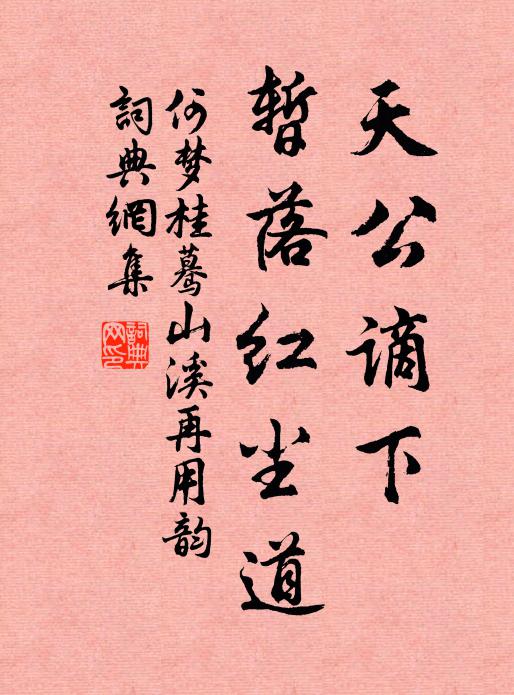 天公谪下
暂落红尘道
何梦桂蓦山溪再用韵
词典網集
詞典網印